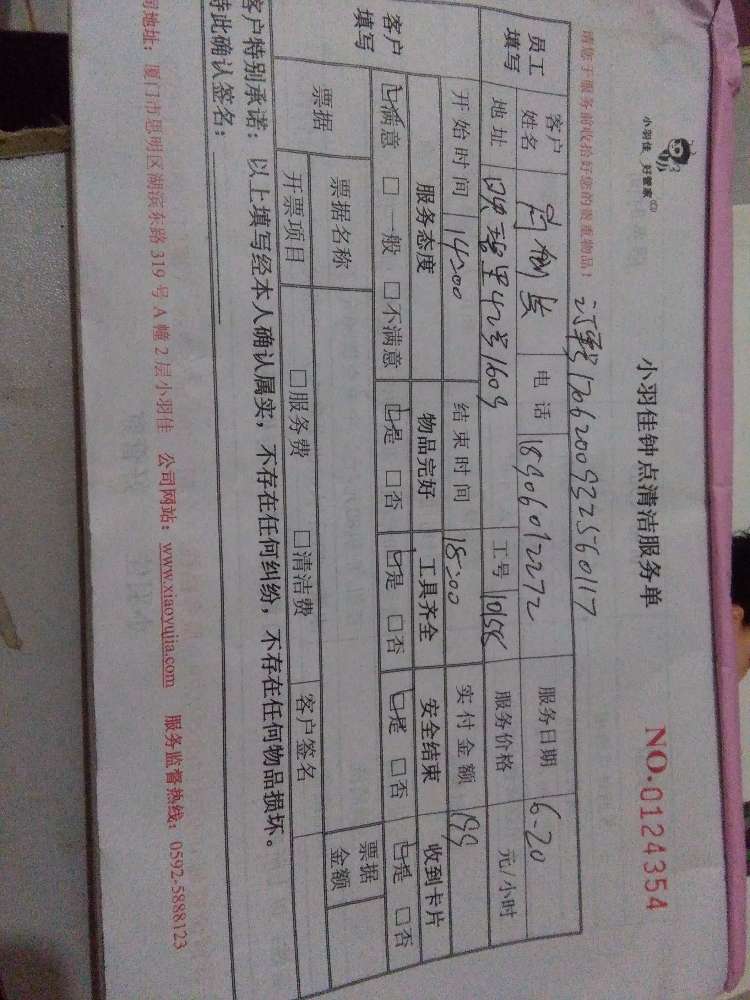 小羽佳 好管家
小羽佳钟点清洁服务单
NO.0124354
请您于服务前收拾好您的贵重物品!
订单号17062009325560117
员工填写 客户姓名 电话 18906012272 服务日期 6-20
地址 42号1609 工号 1058 服务价格 元/小时
开始时间 14:00 结束时间 18:00 实付金额 199
客户填写 服务态度 物品完好 工具齐全 安全结束 收到卡片
☑满意 □一般 □不满意 ☑是 □否 ☑是 □否 ☑是 □否 ☑是 □否
票据 票据名称 票据金额
开票项目 □服务费 □清洁费 客户签名
客户特别承诺:以上填写经本人确认属实,不存在任何纠纷,不存在任何物品损坏。
特此确认签名:
司地址:厦门市思明区湖滨东路319号A幢2层小羽佳 公司网站:www.xiaoyujia.com 服务监督热线:0592-5888123